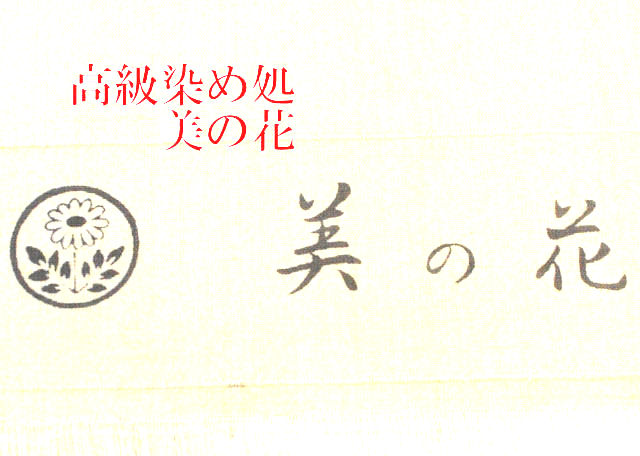 高級染め処
美の花
美の花